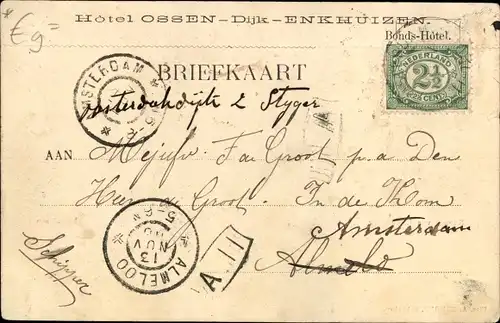 € 9=
Hôtel OSSEN-Dijk-ENKHUIZEN.
Bonds-Hôtel.
BRIEFKAART
NEDERLAND
2½
CENT
AMSTERDAM
2 Styger
AAN Mejufv. F. de Groot p.a Den
Heer de Groot. In de Kom
Amsterdam
Almelo
ALMELOO
5-6N
13
NOV
A 11
Schipper